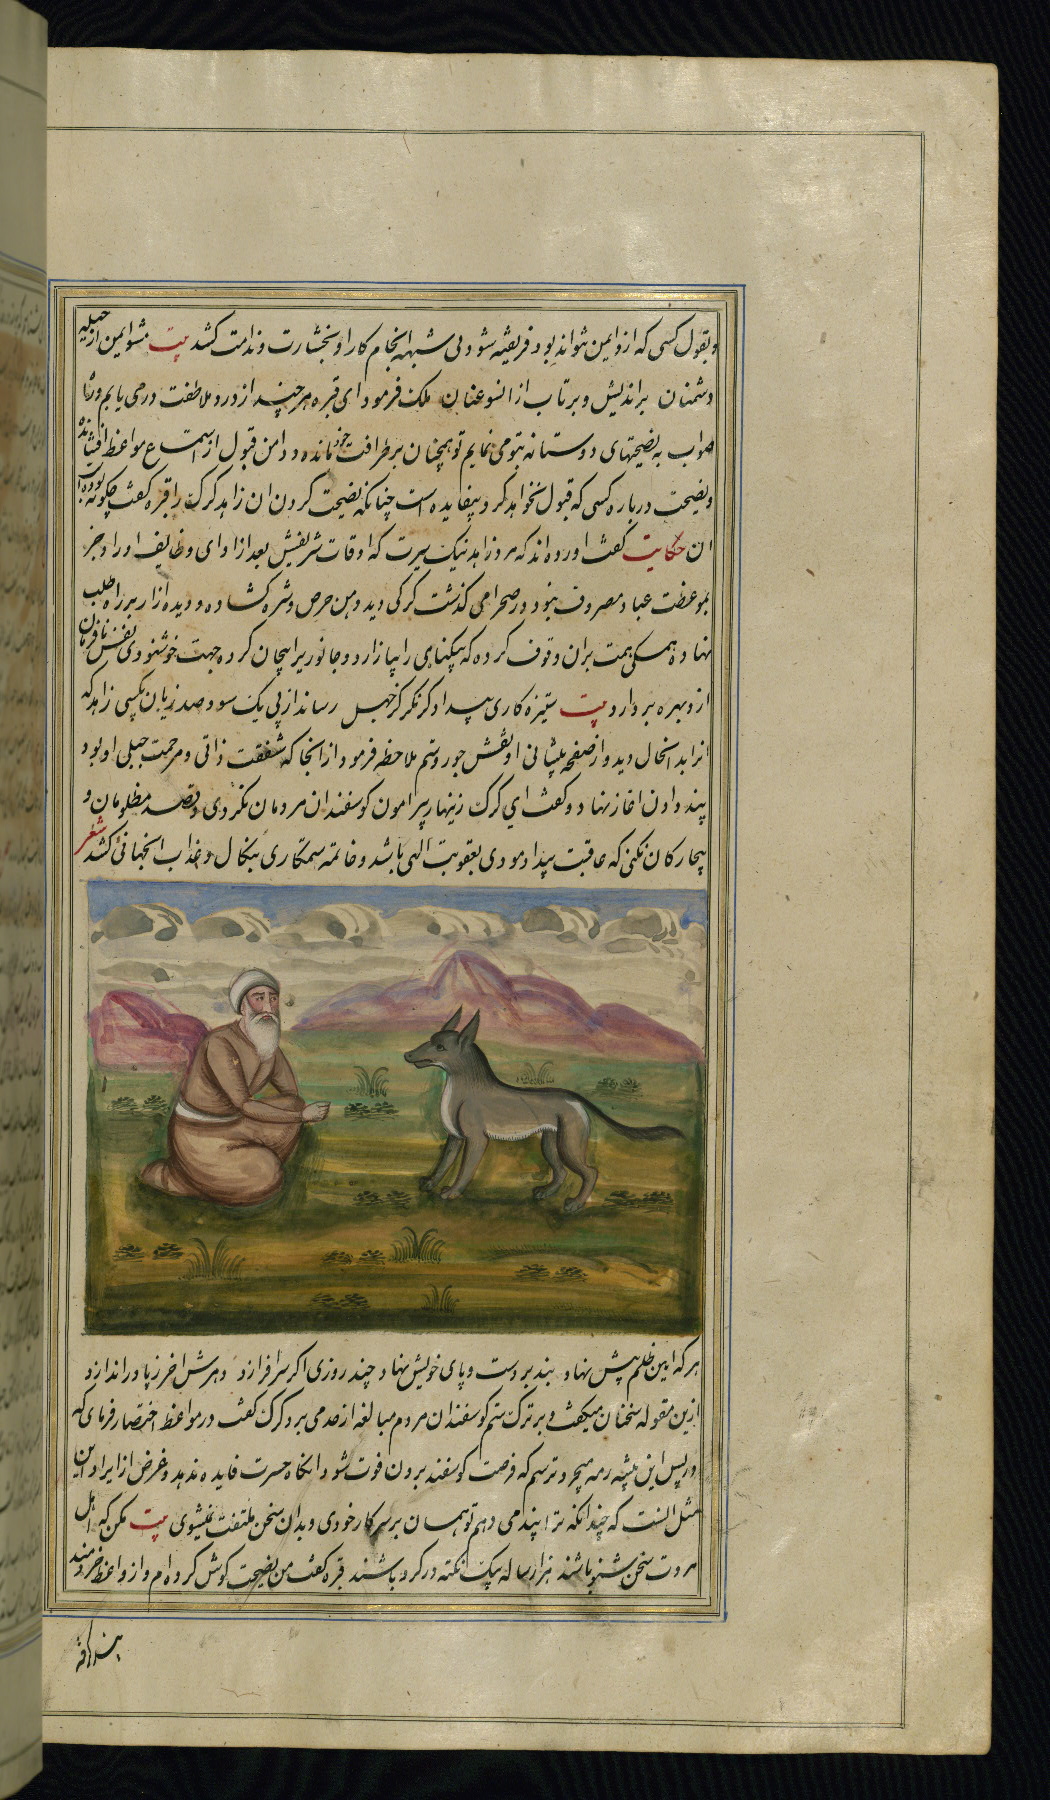 و بقول کسی که ازو ایمن نتواند بود فریفته شود بی شبهه انجام کار او بخسارت و ندامت کشد بیت مشو ایمن از حیله
دشمنان براندیش و برتاب ازانسو عنان ملک فرمود ای قبره هر چند از در ملاطفت درمی یابم و راه
صواب به نصیحتهای دوستانه بتو می نمایم تو همچنان بر طرف خود مانده و دامن قبول از استماع مواعظ افشانده
و نصیحت درباره کسی که قبول نخواهد کرد بیفایده است چنانکه نصیحت کردن ان زاهد کرک را قبره کفت چکونه بوده است
ان حکایت کفت اورده اند که مرد زاهد نیک سیرت که اوقات شریفش بعد از ادای وظایف اوراد جز
بموعظت عباد مصروف نبود در صحرا می کذشت کرکی دید دهن حرص و شره کشاده و دیده از بر راه طلب
نهاده همکی همت بران وقوف کرده که بیکناهی را بیازارد و جانوریرا بیجان کرده جهت خوشنودی نفس نافرمان
ازو بهره بردارد بیت ستیزه کاری بیدادکر نکر کز جهل رساند از پی یک سود صد زیان بکسی زاهد که
انحال دید و از صفحه پیشانی او نقش جور و ستم ملاحظه فرمود از انجا که شفقت ذاتی و مرحمت جبلی او بود
پند دادن اغاز نهاد و کفت ای کرک زینهار پیرامون کوسفندان مردمان نکردی و قصد مظلومان و
بیچارکان نکنی که عاقبت بیدادی مودی بعقوبت الهی باشد و خاتمه ستمکاری بنکال و عذاب انجهانی کشد شعر
هر که ایین ظلم پیش نهاد بند بر دست و پای خویش نهاد چند روزی اکر سرافرازد دهرش اخر ز پا دراندازد
ازین مقوله سخنان میکفت و بر ترک ستم کوسفندان مردم مبالغه از حد می برد کرک کفت در مواعظ اختصار فرمای که
در پس این پشته رمه میچرد و ترسم که فرصت کوسفند بردن فوت شود انکاه حسرت فایده ندهد و غرض از ایراد این
مثل انست که چندانکه ترا پند می دهم تو همان بر سر کار خودی و بدان سخن ملتفت نمیشوی بیت مکن که اهل
مروت سخن شنو باشند هزار ساله بیک نکته در کرو باشند قبره کفت من نصیحت کوش کرده ام و از واعظ خردمند
پند کرفته